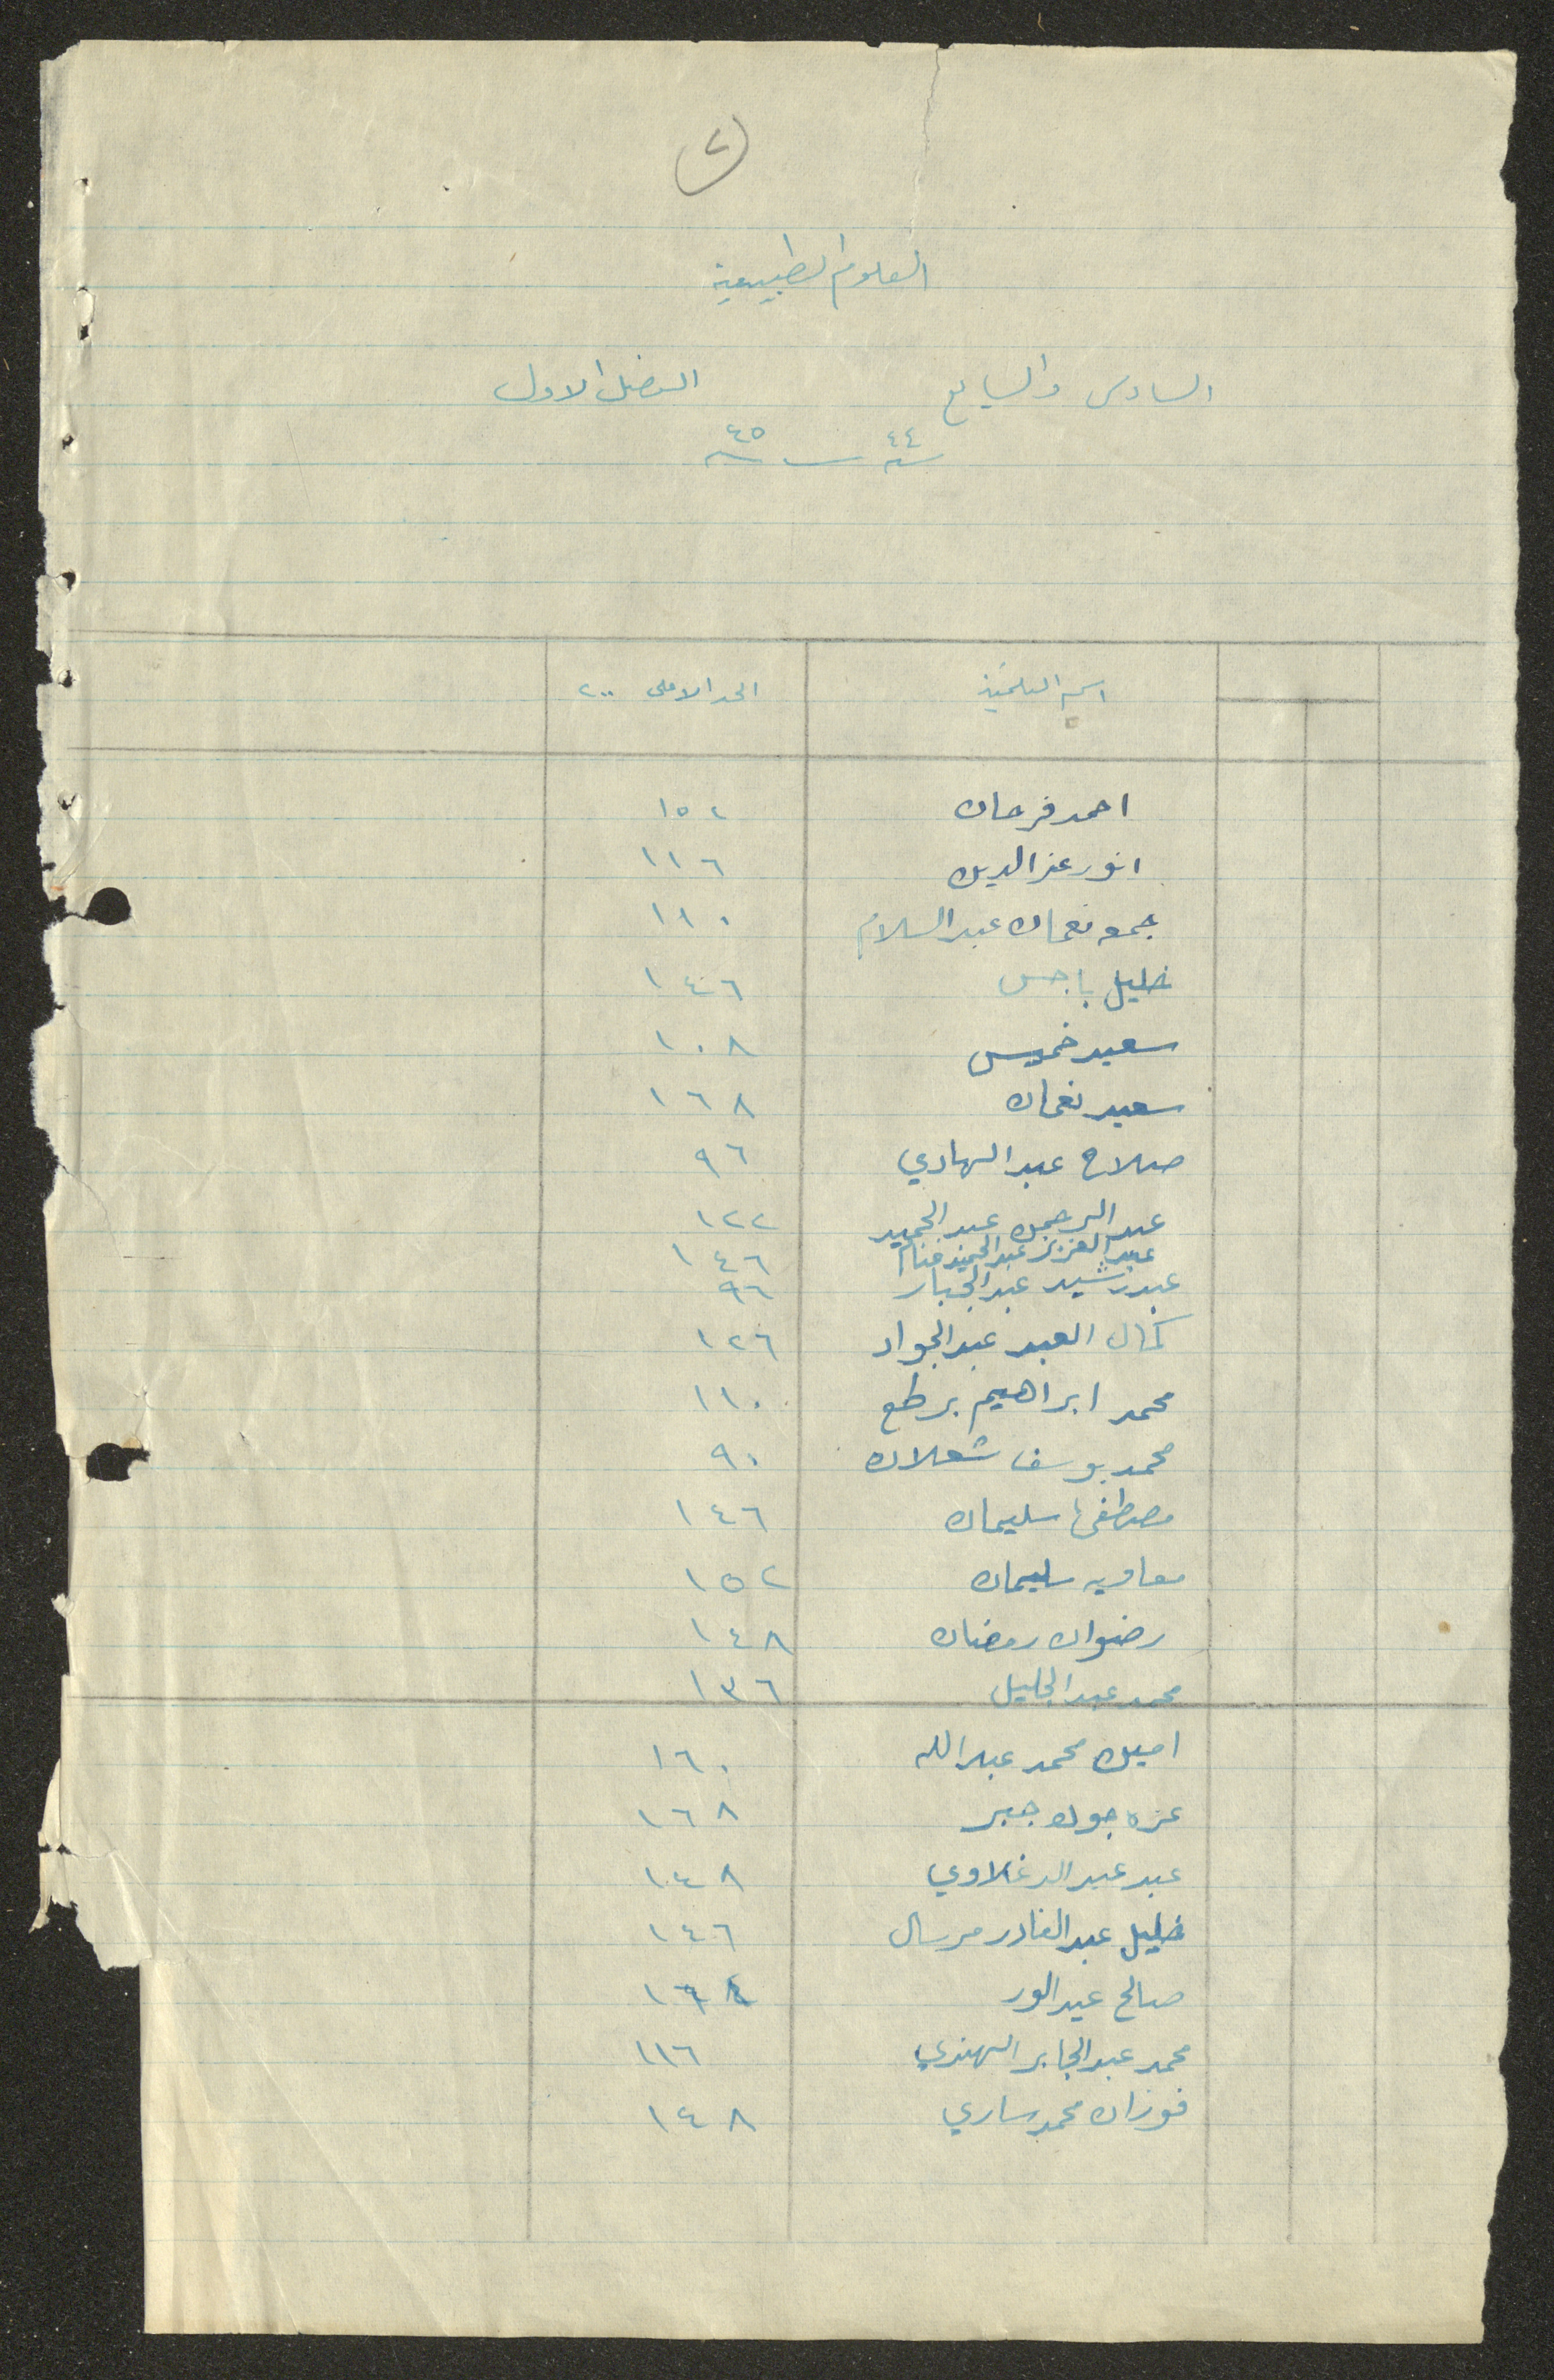 ٢
العلوم الطبيعية
السادس والسابع الفصل الاول
سنة ٤٤ - سنة ٤٥
اسم التلميذ الحد الاعلى ٢٠٠
احمد فرحان ١٥٢
انور عز الدين ١١٦
جمعه نعمان عبد السلام ١١٠
خليل باجس ١٤٦
سعيد خميس ١٠٨
سعيد نعمان ١٦٨
صلاح عبد الهادي ٩٦
عبد الرحمن عبد الحميد ١٢٢
عبد العزيز عبد الحميد غنام ١٤٦
عبد رشيد عبد الجبار ٩٦
كمال العبد عبد الجواد ١٢٦
محمد ابراهيم برطع ١١٠
محمد يوسف شعلان ٩٠
مصطفى سليمان ١٤٦
معاويه سليمان ١٥٢
رضوان رمضان ١٤٨
محمد عبد الجليل ١٣٦
امين محمد عبد الله ١٦٠
عزه جودت جبر ١٦٨
عبد عبد الدغلاوي ١٤٨
خليل عبد القادر مرسال ١٤٦
صالح عيد
محمد عبد الجابر الهندي ١١٦
فوزان محمد ساري ١٤٨